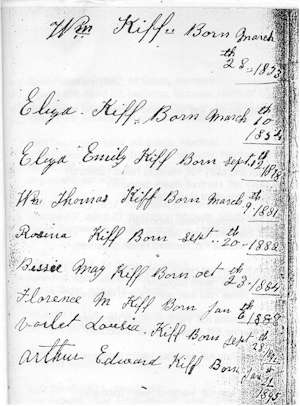 Wm Kiff. Born March
28th - 1853
Eliza. Kiff. Born March 10th
1854
Eliza Emily Kiff Born Sept. 12th 1878
Wm Thomas Kiff Born March 9th 1881
Rosina Kiff Born Sept. 20th - 1882
Bessie May Kiff Born oct 23th - 1884
Florence M Kiff Born Jan 6th 1888
Voilet Lousia. Kiff Born Sept 28th
Arthur Edward Kiff Born Jan 1st
1895